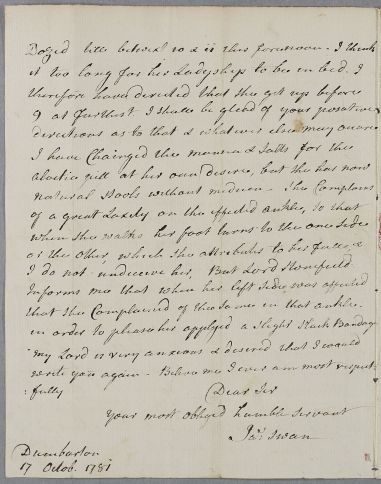 Dozed till betwixt 10 & 11 this forenoon. I think
it too long for her Ladyship to be in bed. I
therefore have directed that she get up before
9 at furthest I shall be glad of your possative
directions as to that & whatever else may occurr
I have Chainged the manna & Salts for the
aloetic pill at her own desire, but she has now
natural Stools without medicin - She Complains
of a great Laxity on the affected ankle, so that
when she walks her foot turns to the one side
or the other, which she attributes to her fall, &
I do not undeceive her, But Lord Stonefield
Informs me that when her left side was affected
that she Complained of the same in that ankle.
in order to please her applyed a Slight Bandage
my Lord is very anxious & desired that I would
write you again - Believe me I ever am most respect
:fully
Dear Sir
your most obliged humble servant
Jas Swan
Dumbarton
17 Octob. 1781